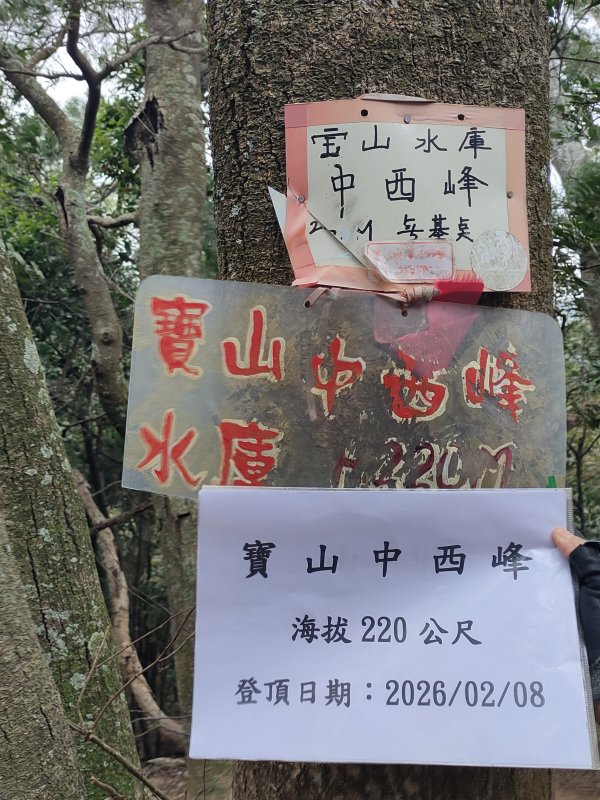 宝山水庫
中西峰
M 無基点
寶山中西峰
水庫 220M
寶山中西峰
海拔220公尺
登頂日期：2026/02/08